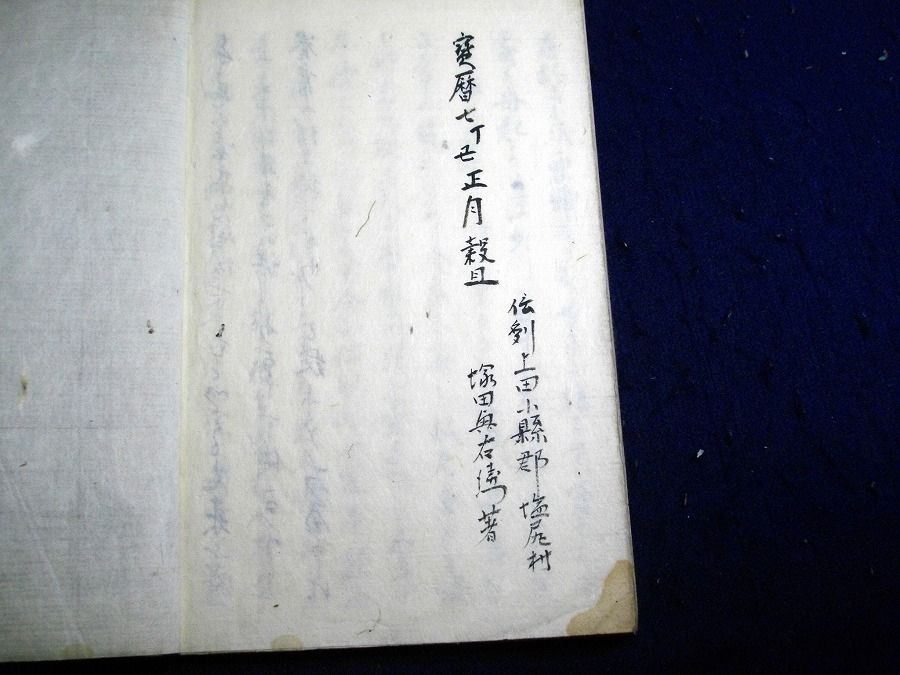 信刕上田小縣郡塩尻村
寳暦七丁丑正月穀旦
塚田與右衛門著